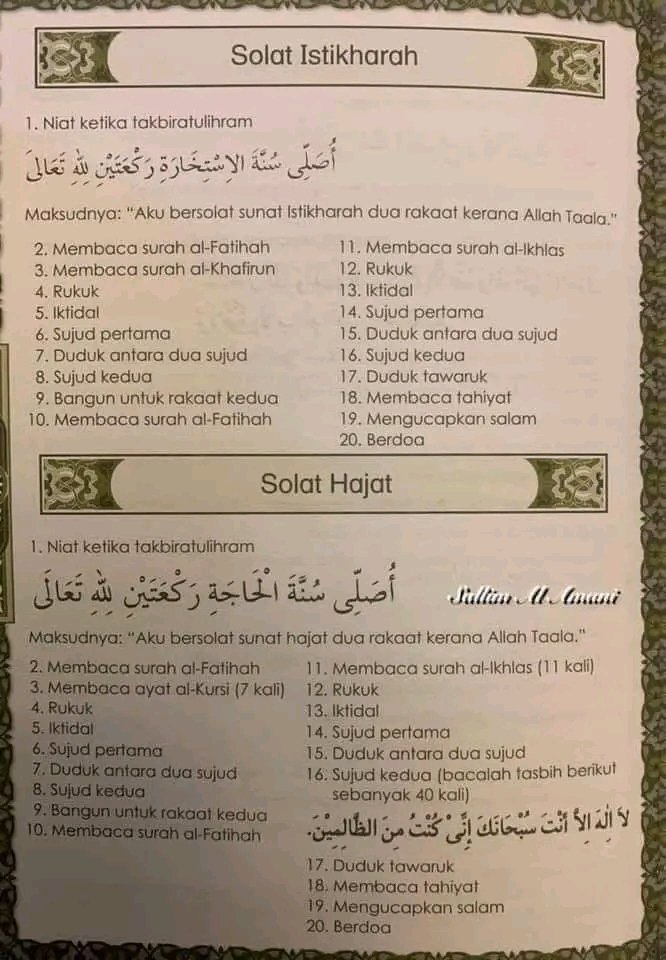 Solat Istikharah
1. Niat ketika takbiratulihram
أُصَلِّى سُنَّةَ الْاِسْتِخَارَةِ رَكْعَتَيْنِ لِلّٰهِ تَعَالَى
Maksudnya: “Aku bersolat sunat Istikharah dua rakaat kerana Allah Taala.”
2. Membaca surah al-Fatihah
3. Membaca surah al-Khafirun
4. Rukuk
5. Iktidal
6. Sujud pertama
7. Duduk antara dua sujud
8. Sujud kedua
9. Bangun untuk rakaat kedua
10. Membaca surah al-Fatihah
11. Membaca surah al-Ikhlas
12. Rukuk
13. Iktidal
14. Sujud pertama
15. Duduk antara dua sujud
16. Sujud kedua
17. Duduk tawaruk
18. Membaca tahiyat
19. Mengucapkan salam
20. Berdoa
Solat Hajat
1. Niat ketika takbiratulihram
أُصَلِّى سُنَّةَ الْحَاجَةِ رَكْعَتَيْنِ لِلّٰهِ تَعَالَى
Sultan Al Amani
Maksudnya: “Aku bersolat sunat hajat dua rakaat kerana Allah Taala.”
2. Membaca surah al-Fatihah
3. Membaca ayat al-Kursi (7 kali)
4. Rukuk
5. Iktidal
6. Sujud pertama
7. Duduk antara dua sujud
8. Sujud kedua
9. Bangun untuk rakaat kedua
10. Membaca surah al-Fatihah
11. Membaca surah al-Ikhlas (11 kali)
12. Rukuk
13. Iktidal
14. Sujud pertama
15. Duduk antara dua sujud
16. Sujud kedua (bacalah tasbih berikut
sebanyak 40 kali)
لاَ اِلٰهَ اِلاَّ أَنْتَ سُبْحَانَكَ إِنِّىْ كُنْتُ مِنَ الظَّالِمِيْنَ.
17. Duduk tawaruk
18. Membaca tahiyat
19. Mengucapkan salam
20. Berdoa